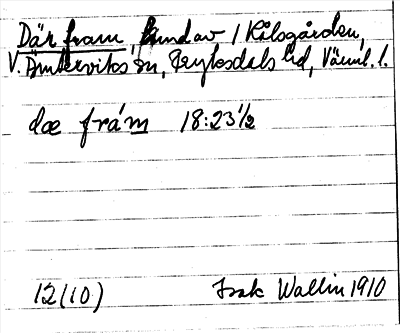 Där fram, sund av / Kålsgården,
V. Ämterviks sn, Fryksdals hd, Värml. l.
dæ frám 18:23½
12(10) Isak Wallin 1910